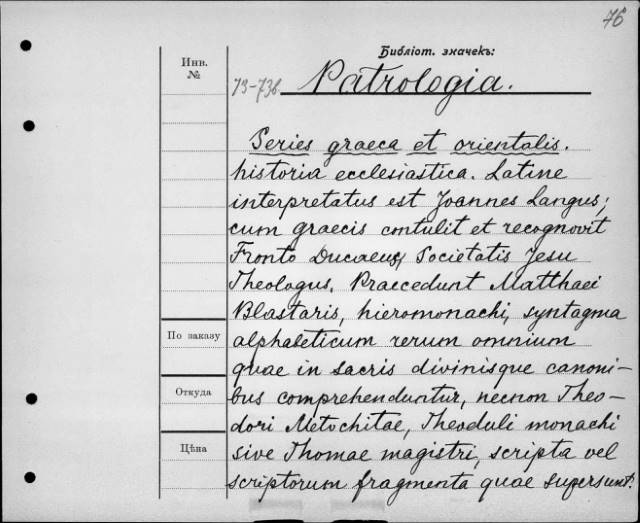 76
Инв.
№
Библіот. значекъ:
73-73б. Patrologia.
Series graeca et orientalis.
historia ecclesiastica. Latine
interpretatus est Joannes Langus;
cum graecis contulit et recognovit
Fronto Ducaeus, Societatis Jesu
Theologus. Praecedunt Matthaei
Blastaris, hieromonachi, syntagma
По заказу
alphabeticum rerum omnium
quae in sacris divinisque canoni-
Откуда
bus comprehenduntur, necnon Theo-
dori Metochitae, Theoduli monachi
Цѣна
sive Thomae magistri, scripta vel
scriptorum fragmenta quae supersunt.